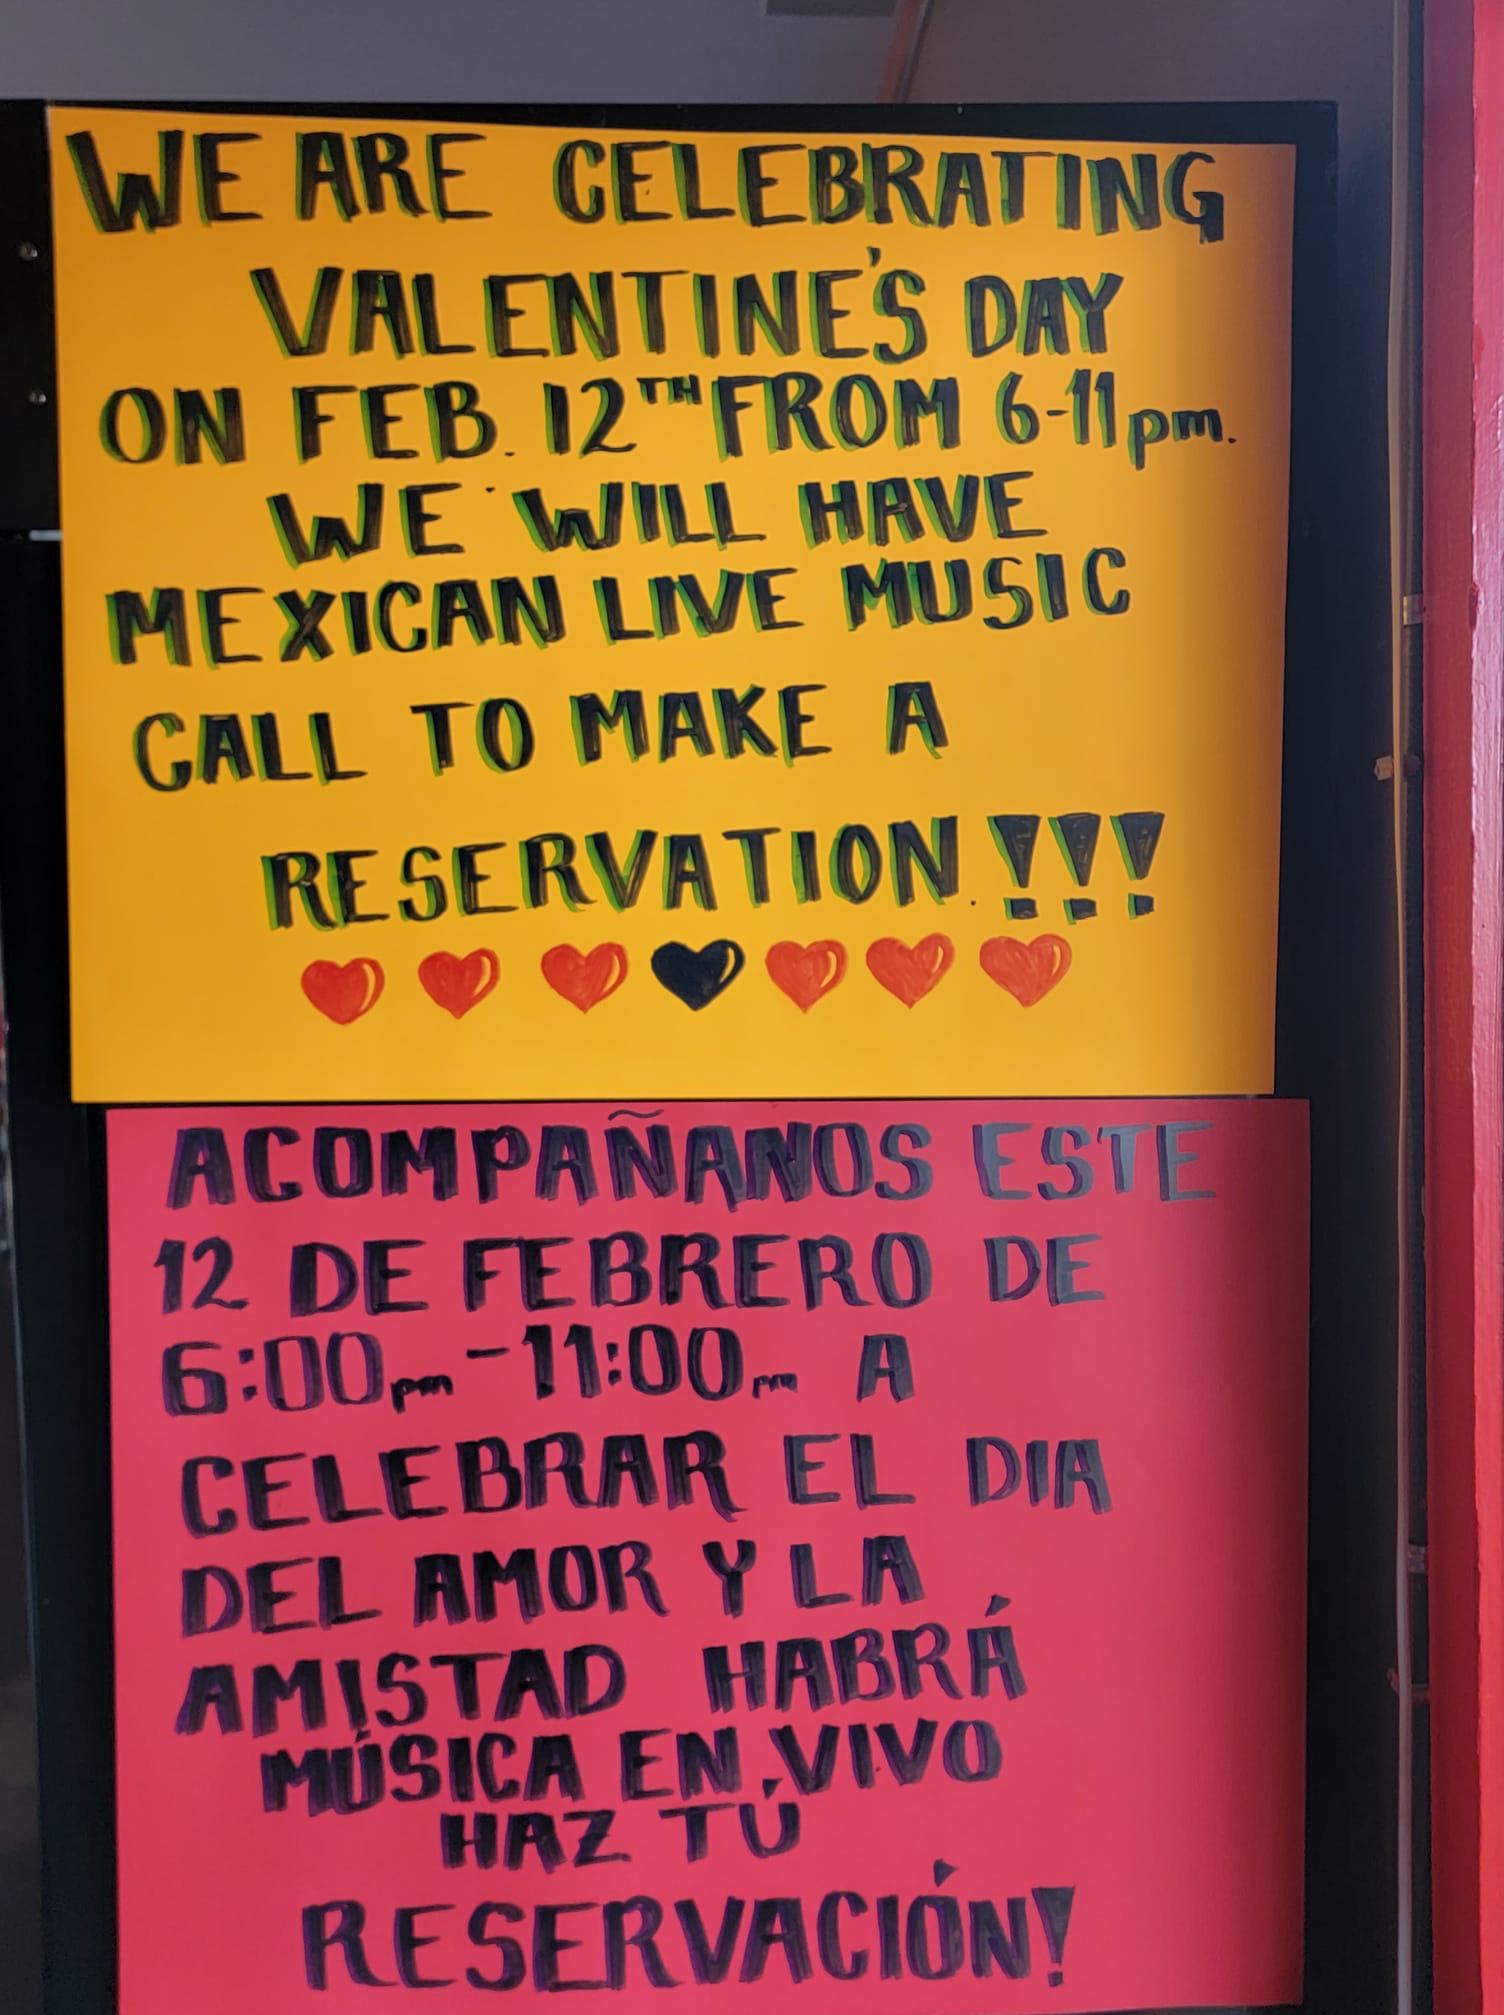 WE ARE CELEBRATING
VALENTINE'S DAY
ON FEB. 12TH FROM 6-11pm.
WE WILL HAVE
MEXICAN LIVE MUSIC
CALL TO MAKE A
RESERVATION. !!!
ACOMPAÑANOS ESTE
12 DE FEBRERO DE
6:00pm-11:00pm A
CELEBRAR EL DIA
DEL AMOR Y LA
AMISTAD HABRÁ
MÚSICA EN VIVO
HAZ TÚ
RESERVACIÓN!